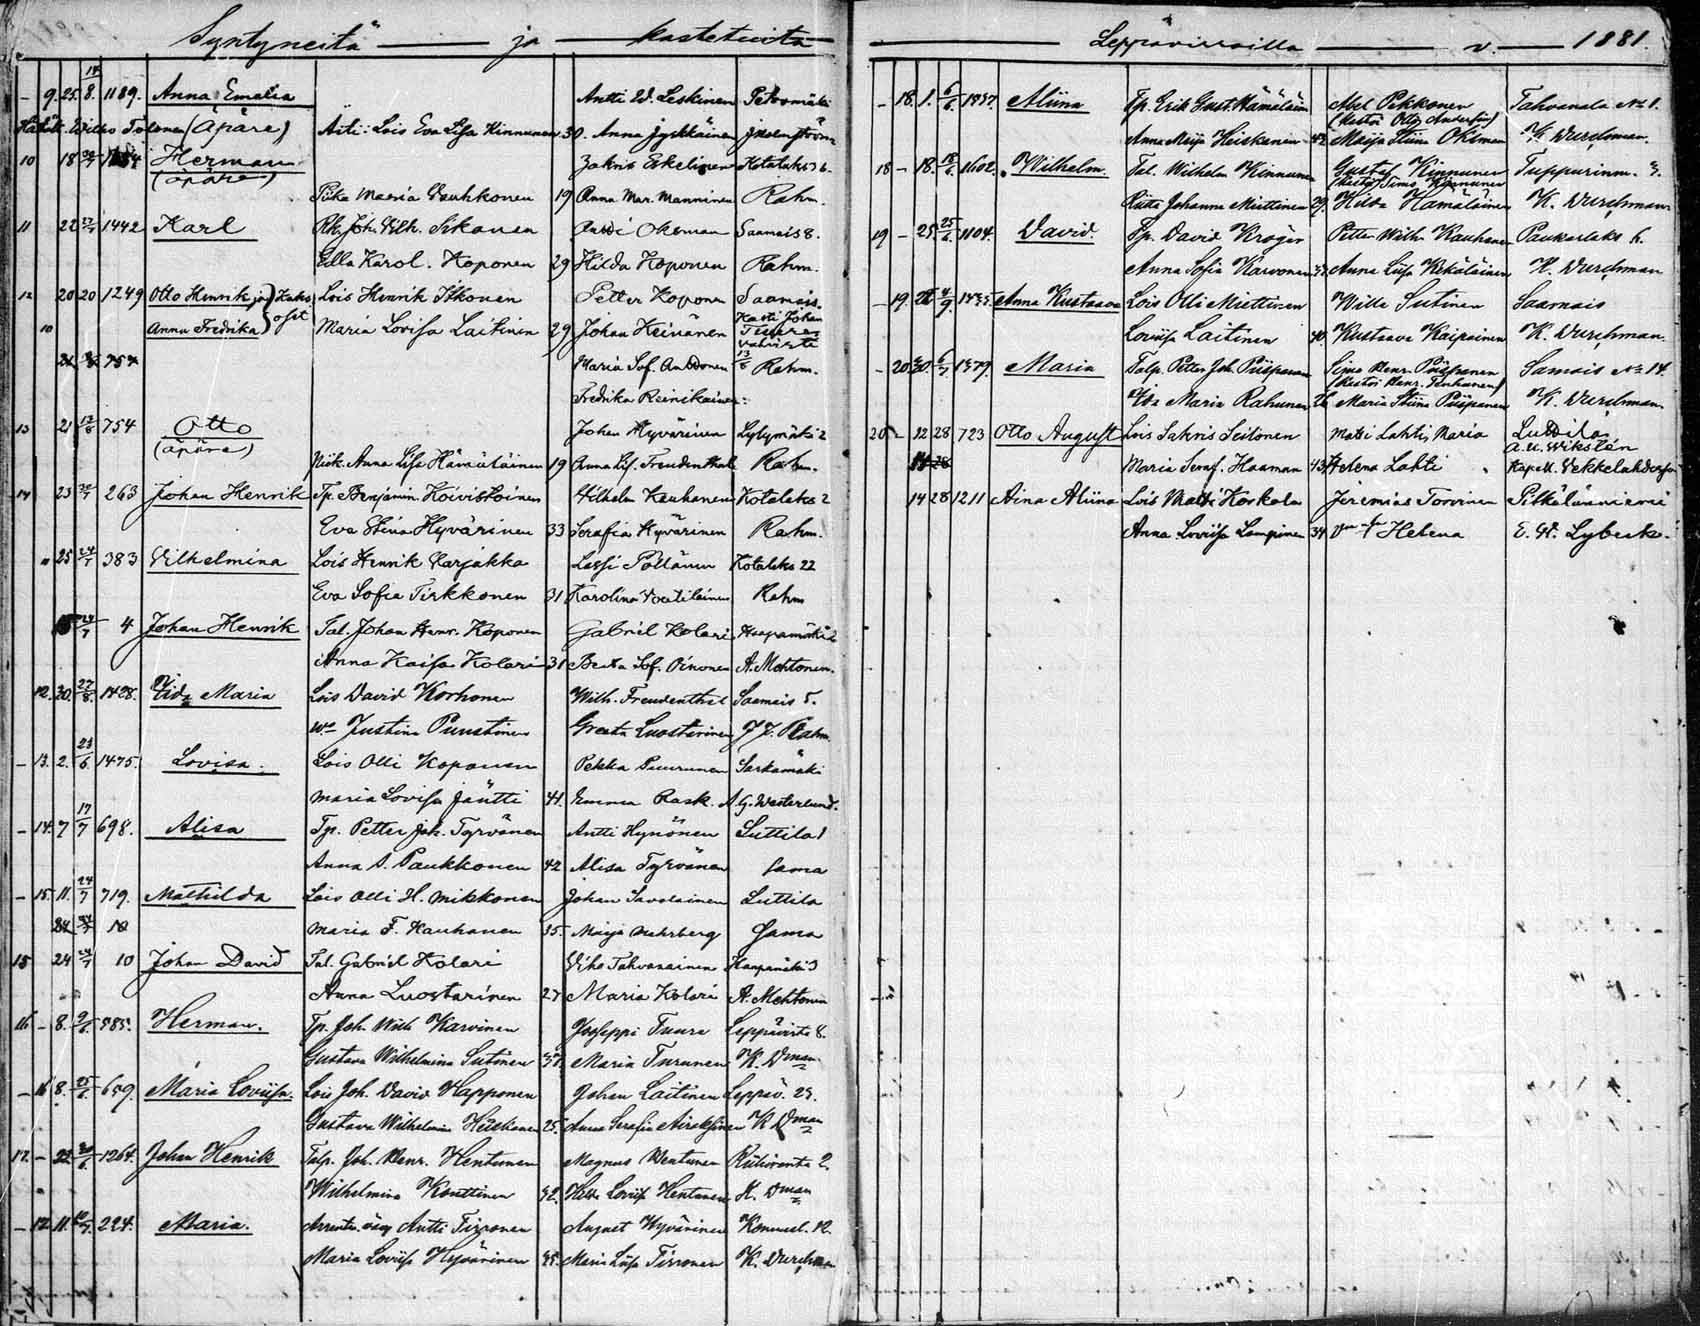 Syntyneitä ja kastetuita
9. 25. 14/8. 1189. Anna Emalia Antti W. Leskinen Petromäki
Tolonen (Äpäre) Äiti: Lois Eva Lisa Kinnunen 30. Anna Jyrkkäinen
10 18 Herman Zakris Eskelinen Kotalaks 36.
(äpäre)
Piika Maria Vauhkonen 19 Anna Mar. Manninen Rahm.
11 22 1442 Karl Rh. Joh. Vilh. Sikanen Antti Oksman Saamais 8.
Ulla Karol. Koponen 29 Hilda Koponen Rahm.
12 20 20 1249 Otto Henrik ja Kaks Lois Henrik Ikonen Petter Koponen Saamais.
10 Anna Fredrika Maria Lovisa Laitinen 29 Johan Heinänen
21 754 Maria Sof. 13/8 Rahm.
Fredrika Reinikainen
13 21 12/8 754 Otto Johan Hyvärinen Lylymäki 2
(äpäre)
Piik. Anna Lisa Hämäläinen 19 Anna Lis. Freudenthal Rahm.
14 23 263 Johan Henrik Tp. Benjamin Koivistoinen Wilhelm Kauhanen Kotalaks 2
Eva Stina Hyvärinen 33 Serafia Hyvärinen Rahm.
" 25 24/7 383 Vilhelmina Lois Henrik Karjakka Lassi Pöllänen Kotalaks 22
Eva Sofia Tirkkonen 31 Karolina Voutilainen Rahm
15 24/7 4 Johan Henrik Tal. Johan Henr. Koponen Gabriel Kolari Haapamäki 2
Anna Kaisa Kolari 31 Beata Sof. Oinonen A. Mehtonen.
12. 30. 27/8. 1428. Iida Maria Lois David Korhonen Wilh. Freudenthal Saamais 5.
Wo Justina Puustinen Greeta Luostarinen J. F. Rahm.
– 13. 2. 23/6 1475. Lovisa. Lois Olli Koponen Pekka Puurunen Sarkamäki
Maria Lovisa Jäntti 41. Emma Rask. A. G. Westerlund.
– 14. 7 17/7 698. Alisa Tp. Petter Joh. Tyrvänen Antti Hynönen Luttila 1
Anna S. Paukkonen 42 Alisa Tyrvänen Sama
– 15. 11. 24/7 719. Mathilda Lois Olli H. Mikkonen Johan Savolainen Luttila
24 10 Maria F. Kauhanen 35. Maija Mehrberg Sama
15 24 24/7 10 Johan David Tal. Gabriel Kolari Viho Tahvanainen Haapamäki 3
Anna Luostarinen 27 Maria Kolari A. Mehtonen
16 – 8. 9/6 585. Herman. Tp. Joh. Wilh Karvinen Joseppi Tuure Leppävirta 8.
Gustava Wilhelmina Sutinen 37. Maria Turunen K. Dman
– 16 8. 25/6 659. Maria Loviisa. Lois Joh. David Happonen Johan Laitinen Leppäv. 29.
Gustava Wilhelmina Heiskanen 25. Anna Serafia Airaksinen K Dman
17. – 22 1264. Johan Henrik Talp. Joh. Henr. Hentunen Magnus Hentunen Riihiranta 2.
Wilhelmina Konttinen 32. Hilda Loviis Hentunen K. Dman
– 17. 11. 224. Maria. Antti Tirronen August Hyvärinen Konnusl. 12.
Maria Loviisa Hyvärinen 45. Maria Liisa Tirronen K. Durchman
Leppävirroilla v. 1881.
– 18. 1. 6/6 1337. Miina Tp. Erik Gust. Hämäläin Abel Pekkonen Tahvanala No 1.
Anna Maija Heiskanen 42. Maija Stiina Oksman K. Durchman.
18 – 18. 18/6. 1602. Wilhelm. Tal. Wilhelm Kinnunen Gustaf Kinnunen Tuppurinm. 3.
Riitta Johanna Miettinen 29. Hilda Hämäläinen K. Durchman
19 – 25. 25/6. 1104. David. Tp. David Kröger Petter Wilh. Kauhanen Paukarlaks 6.
Anna Sofia Karvonen Anna Liisa Kekäläinen K. Durchman
– 19. 4/9. Anna Kustaava Lois Olli Miettinen Wille Sutinen Saamais
Loviisa Laitinen 40. Kustaava Kaipainen K. Durchman.
– 20. 30. 6/7 1379. Maria Talp. Petter Joh. Piispanen Simo Henr. Piispanen Samais No 14.
Maria Rahunen 26 Maria Stiina Piispanen K. Durchman.
20 – 12 28 723 Otto August Lois Sakris Seilonen Matti Lahti, Maria Luttila
A. U. Wikstén
14 28 Maria Seraf. Haaman 43 Helena Lahti Kapell. Vekkelahdessa
14 28 1211 Aina Aliina Lois Matti Koskela Jeremias Torvinen Pitkälänniemi
Anna Loviisa Lampinen 34 Helena E. W. Lybeck.